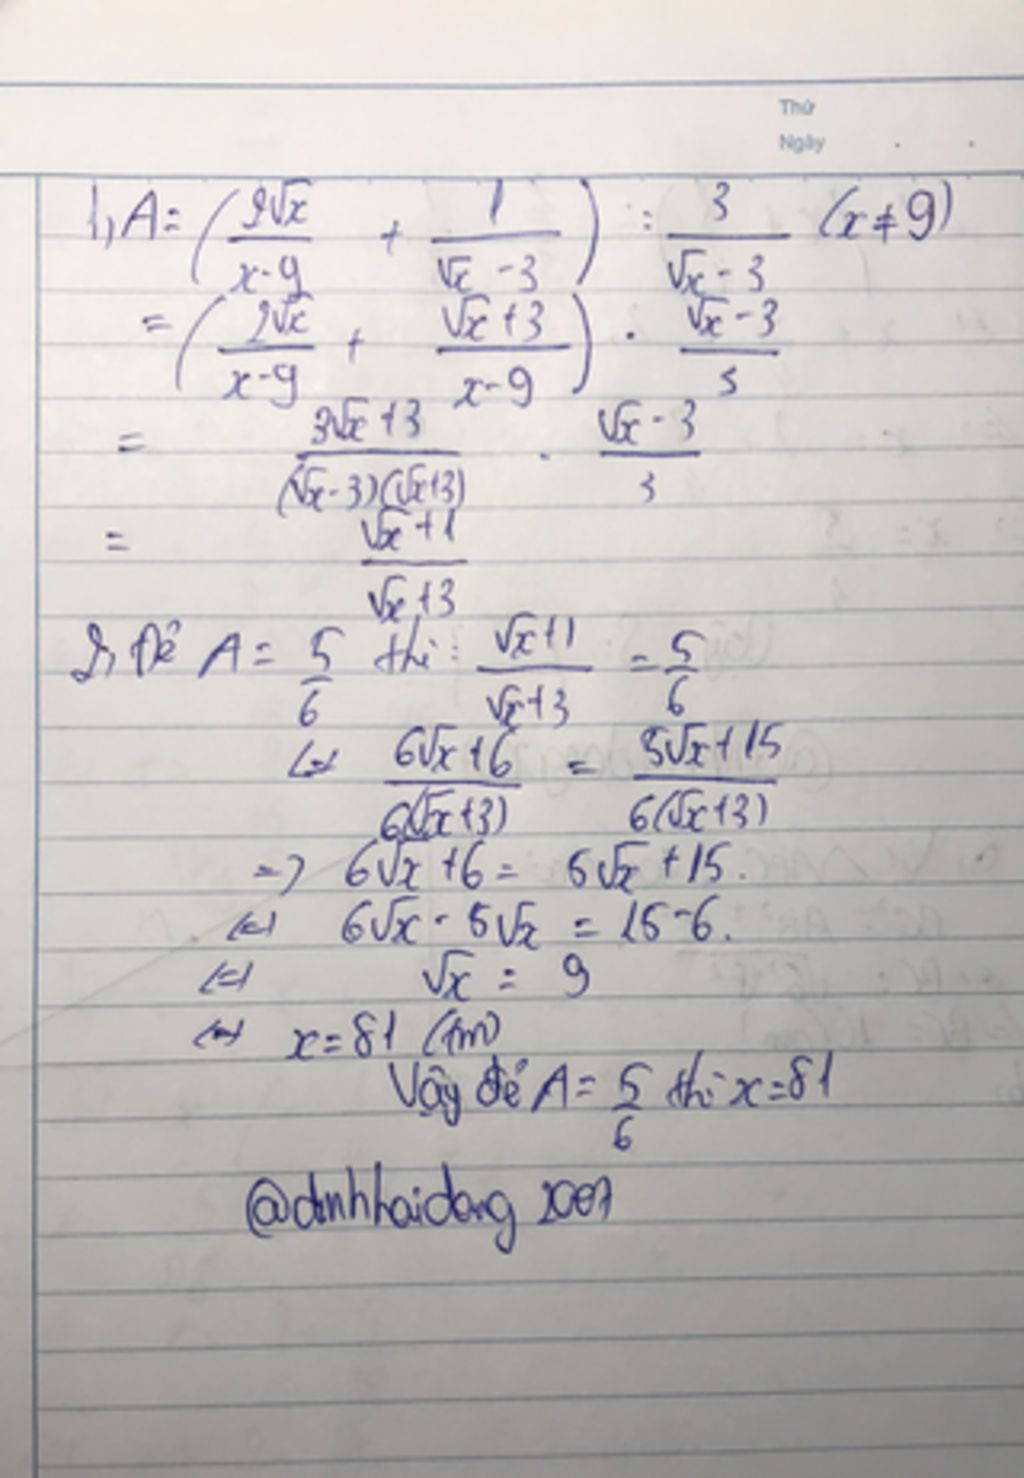 Thứ
Ngày
1, A = (2√x/(x-9) + 1/(√x - 3)) : 3/(√x - 3) (x ≠ 9)
= (2√x/(x-9) + (√x + 3)/(x-9)) . (√x - 3)/3
= (3√x + 3)/((√x - 3)(√x + 3)) . (√x - 3)/3
= (√x + 1)/(√x + 3)
2, Để A = 5/6 thì: (√x + 1)/(√x + 3) = 5/6
<=> (6√x + 6)/(6(√x + 3)) = (5√x + 15)/(6(√x + 3))
=> 6√x + 6 = 5√x + 15.
<=> 6√x - 5√x = 15 - 6.
<=> √x = 9
<=> x = 81 (tm)
Vậy để A = 5/6 thì x = 81
@dinhhaidang 2007